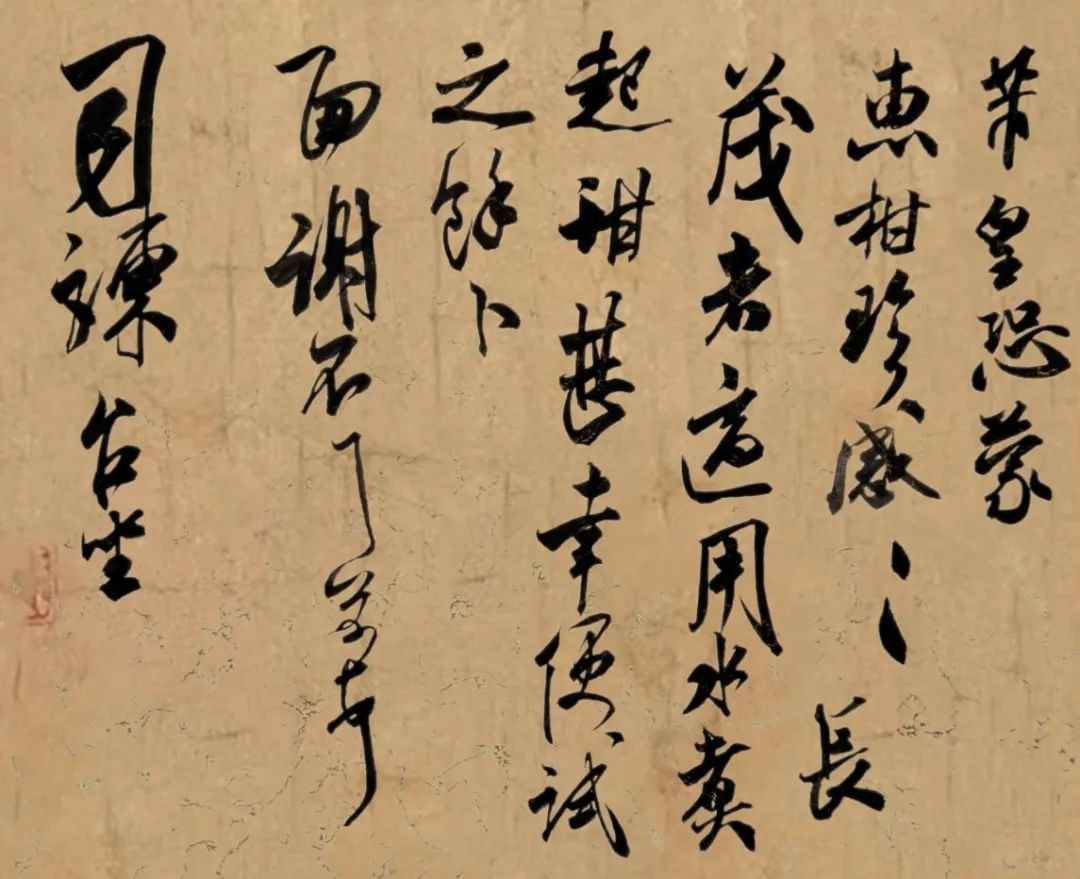 芾皇恐蒙
惠柑珍感〻長
茂者適用水煮
起甜甚幸便試
之餘卜
面謝不頓首
司諫台坐